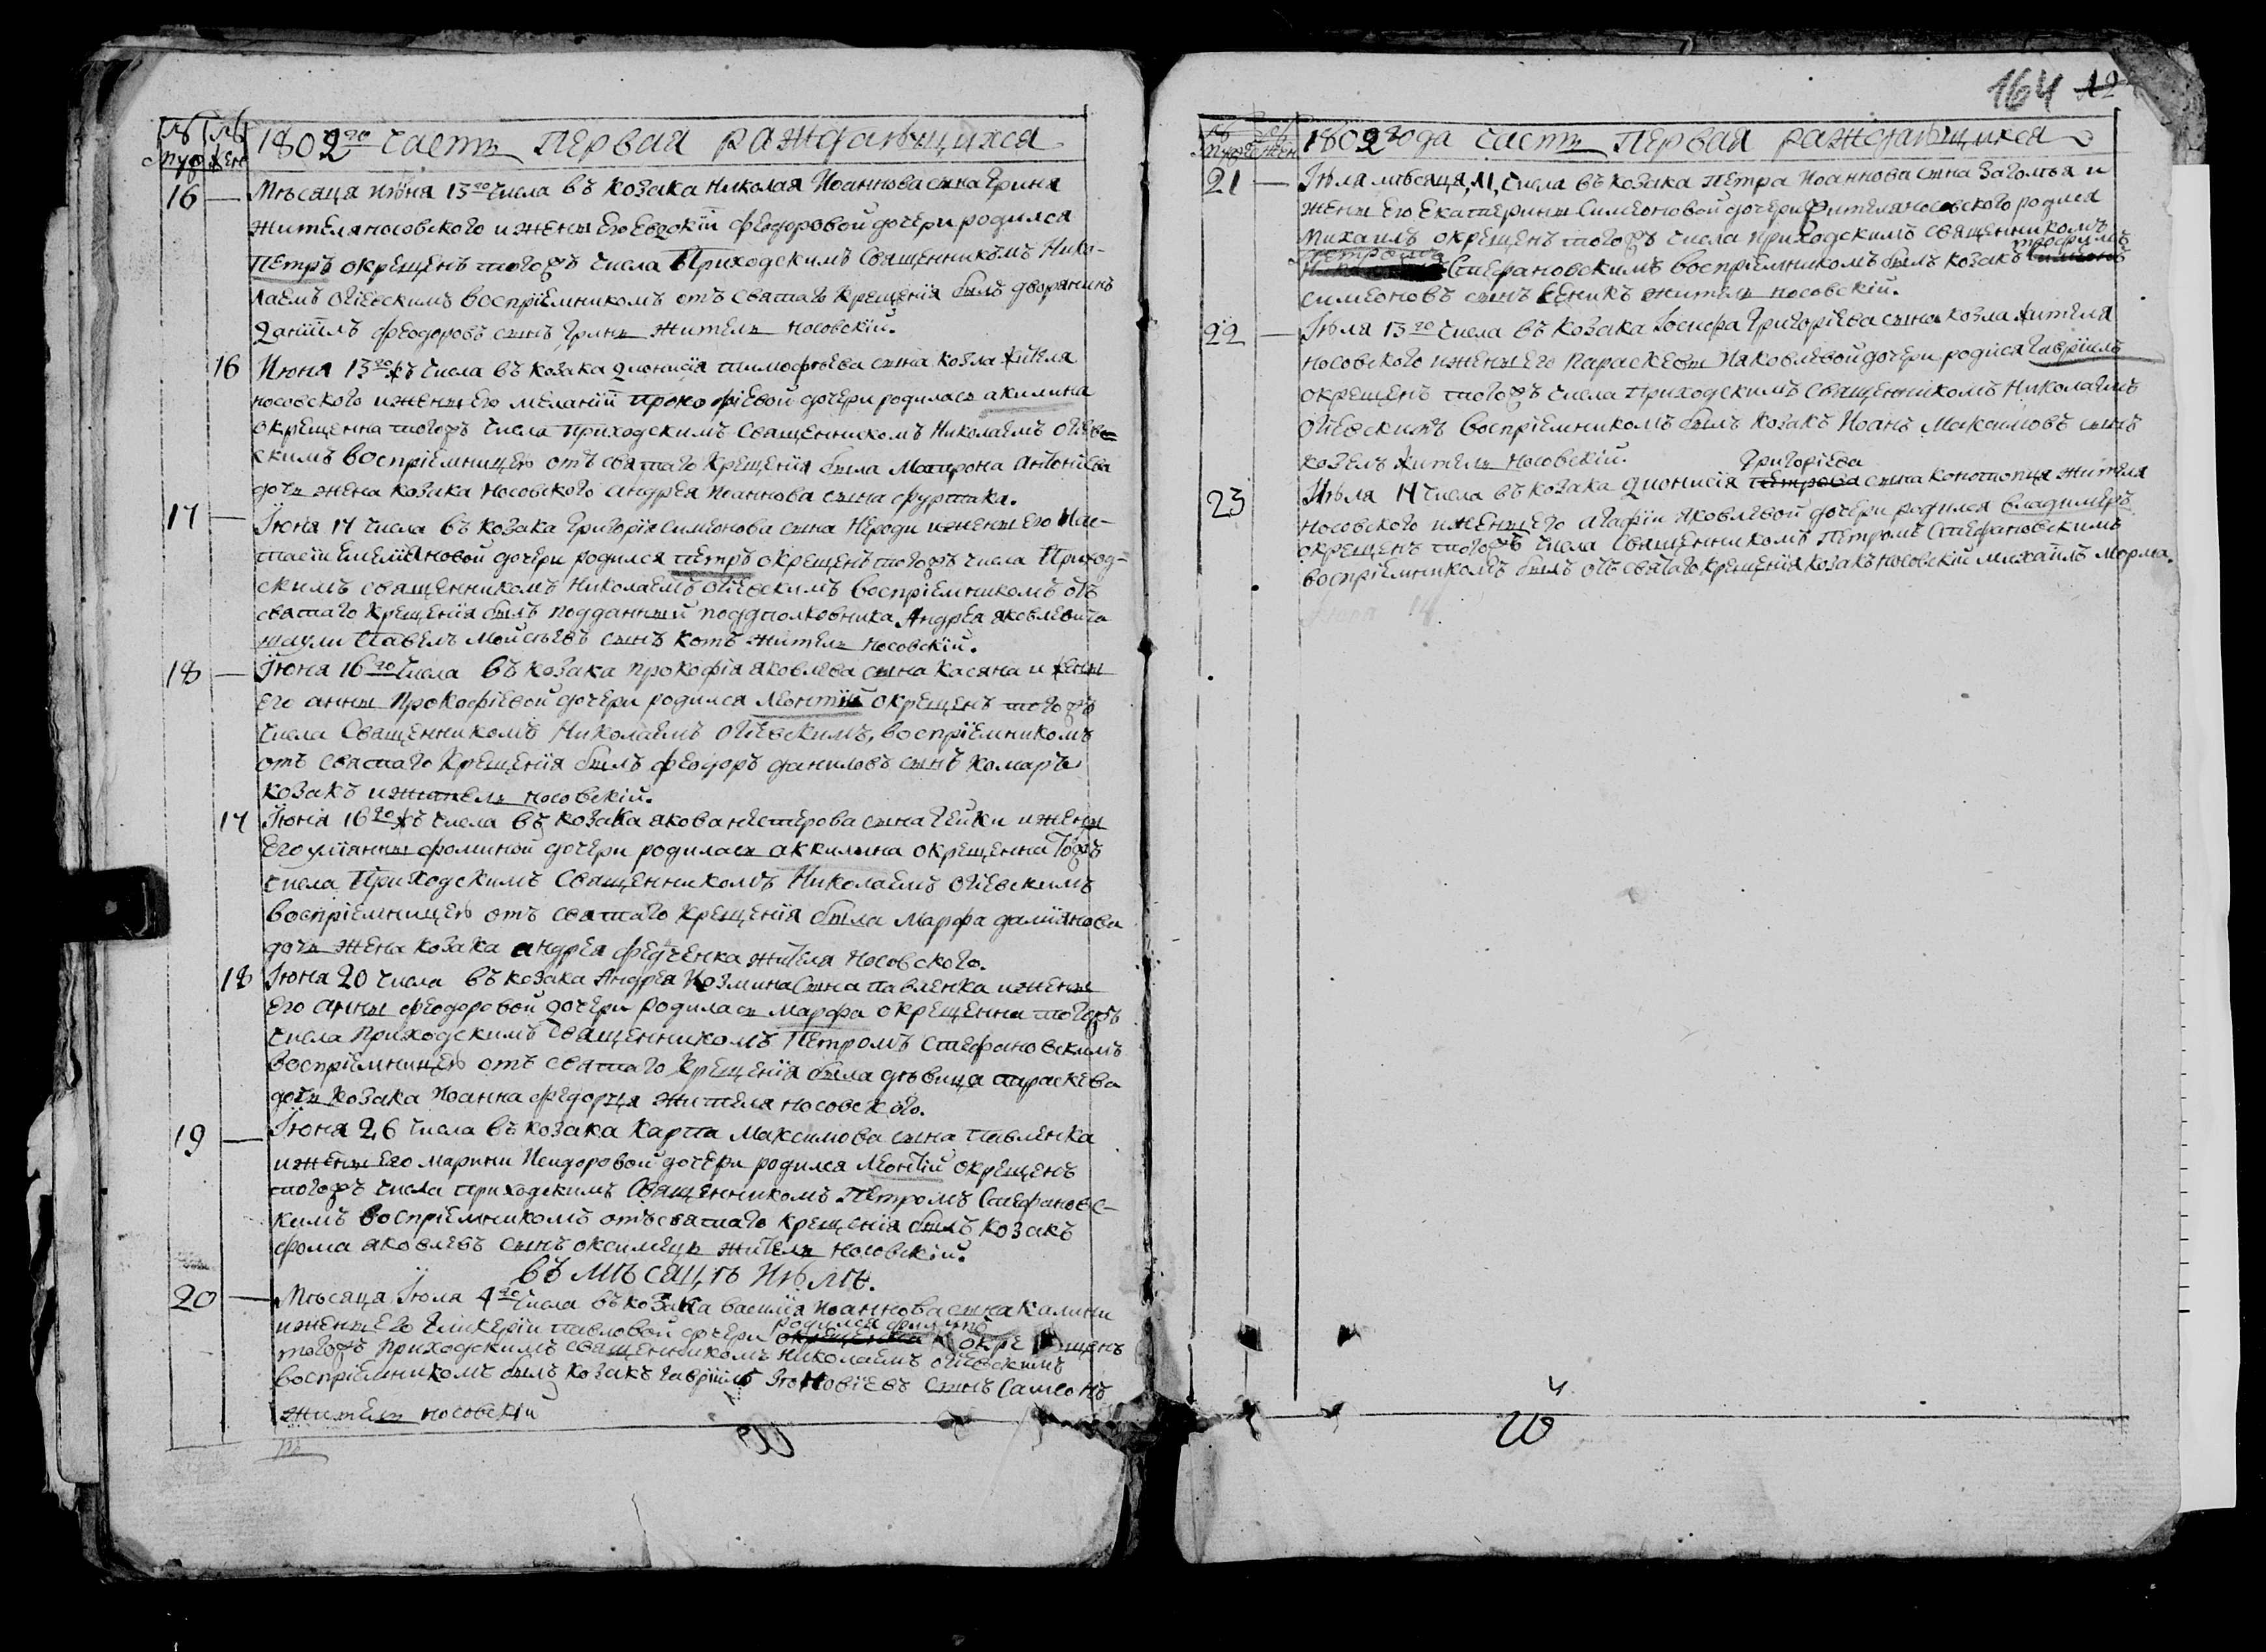 № муж № жен 1802го часть Первая раждающихся
16 — Мѣсяца июня 13го числа въ козака Николая Иоаннова сына Гриня
жителя носовского и жены Его Евдокіи феодоровой дочери родился
Петръ окрещенъ тогожъ числа Приходскимъ Священникъмъ Нико-
лаемъ Огіевскимъ воспріемникомъ отъ святаго крещенія былъ дворянинъ
Даніилъ феодоровъ сынъ Гринь житель носовскій.
16 Июня 13гожъ числа въ козака Дионисія тимофѣева сына козла жителя
носовского и жены Его меланіи прокофіевой дочери родилась акилина
окрещенна тогожъ числа приходскимъ Священникомъ Николаемъ Огіев-
скимъ воспріемницею отъ святаго крещенія была Матрона антоніева
дочь жена козака носовского андрея иоаннова сына фуртака.
17 — Июня 14 числа въ козака Григорія симеонова сына Негоди и жены Его Нас-
тасіи Емеліяновой дочери родился петръ окрещенъ тогожъ числа Приход-
скимъ священникомъ Николаемъ Огіевскимъ воспріемникомъ отъ
святаго крещенія былъ подданный подполковника Андрея яковлевича
шаули Павелъ мойсѣевъ сынъ котъ житель носовскій.
18 — Июня 16го числа въ козака прокофія яковлева сына касяна и жены
его анны Прокофіевой дочери родился Леонтій окрещенъ тогожъ
числа Священникомъ Николаемъ Огіевскимъ, воспріемникомъ
отъ святаго крещенія былъ феодоръ даниловъ сынъ комаръ
козакъ и житель носовскій.
17 Июня 16гожъ числа въ козака якова нестерова сына Гейки и жены
Его уліянны фоминой дочери родилась аккилина окрещенна тогожъ
числа Приходскимъ Священникомъ Николаемъ Огіевскимъ
воспріемницею отъ святаго крещенія была Марфа даміянова
дочь жена козака андрея федченка жителя носовского.
18 Июня 20 числа въ козака Андрея Козмина сына павленка и жены
Его анны феодоровой дочери родилась Марфа окрещенна тогожъ
числа приходскимъ Священникомъ Петромъ Стефановскимъ
воспріемницею отъ святаго крещенія была дѣвица параскева
дочь козака Иоанна федорця жителя носовского.
19 — Июня 26 числа въ козака Карпа Максимова сына Павленка
и жены Его марини Исидоровой дочери родился Леонтій окрещенъ
тогожъ числа приходскимъ Священникомъ Петромъ Стефановс-
кимъ воспріемникомъ отъ святаго крещенія былъ козакъ
фома яковлевъ сынъ оксимець житель носовскій.
въ мѣсяцѣ Июлѣ.
20 — Мѣсяца Июля 4го числа въ козака василія Иоаннова сына калини
родился филипъ
и жены Его Гликеріи павловой дочери окрещенна окрещенъ
тогожъ приходскимъ священникомъ николаемъ огіевскимъ
воспріемникомъ былъ козакъ гавріилъ сынъ
житель носовскій
164 12
№ муж № жен 1802 года часть Первая раждающихся
21 — Июля мѣсяця, 11, числа въ козака Петра Иоаннова сына и
жены Его Екатерины Симеоновой дочери жителя носовского родился
Михаилъ окрещенъ тогожъ числа приходскимъ священникомъ
Петромъ трофимъ
Стефановскимъ воспріемникомъ былъ козакъ
симеоновъ сынъ житель носовскій.
22 — Июля 13го числа въ козака Іосифа Григоріева сына козла жителя
носовского и жены Его параскевы Иаковлевой дочери родился гавріилъ
окрещенъ тогожъ числа Приходскимъ Священникомъ Николаемъ
Огіевскимъ воспріемникомъ былъ козакъ Иоанъ Максимовъ сынъ
козелъ житель носовскій.
Григоріева
23 Июля 14 числа въ козака Дионисія петрова сына конотопця жителя
носовского и жены Его агафіи яковлевой дочери родился владимеръ
окрещенъ тогожъ числа Священникомъ Петромъ Стефановскимъ
воспріемникомъ былъ отъ святаго крещенія козакъ носовскій михаилъ морма.